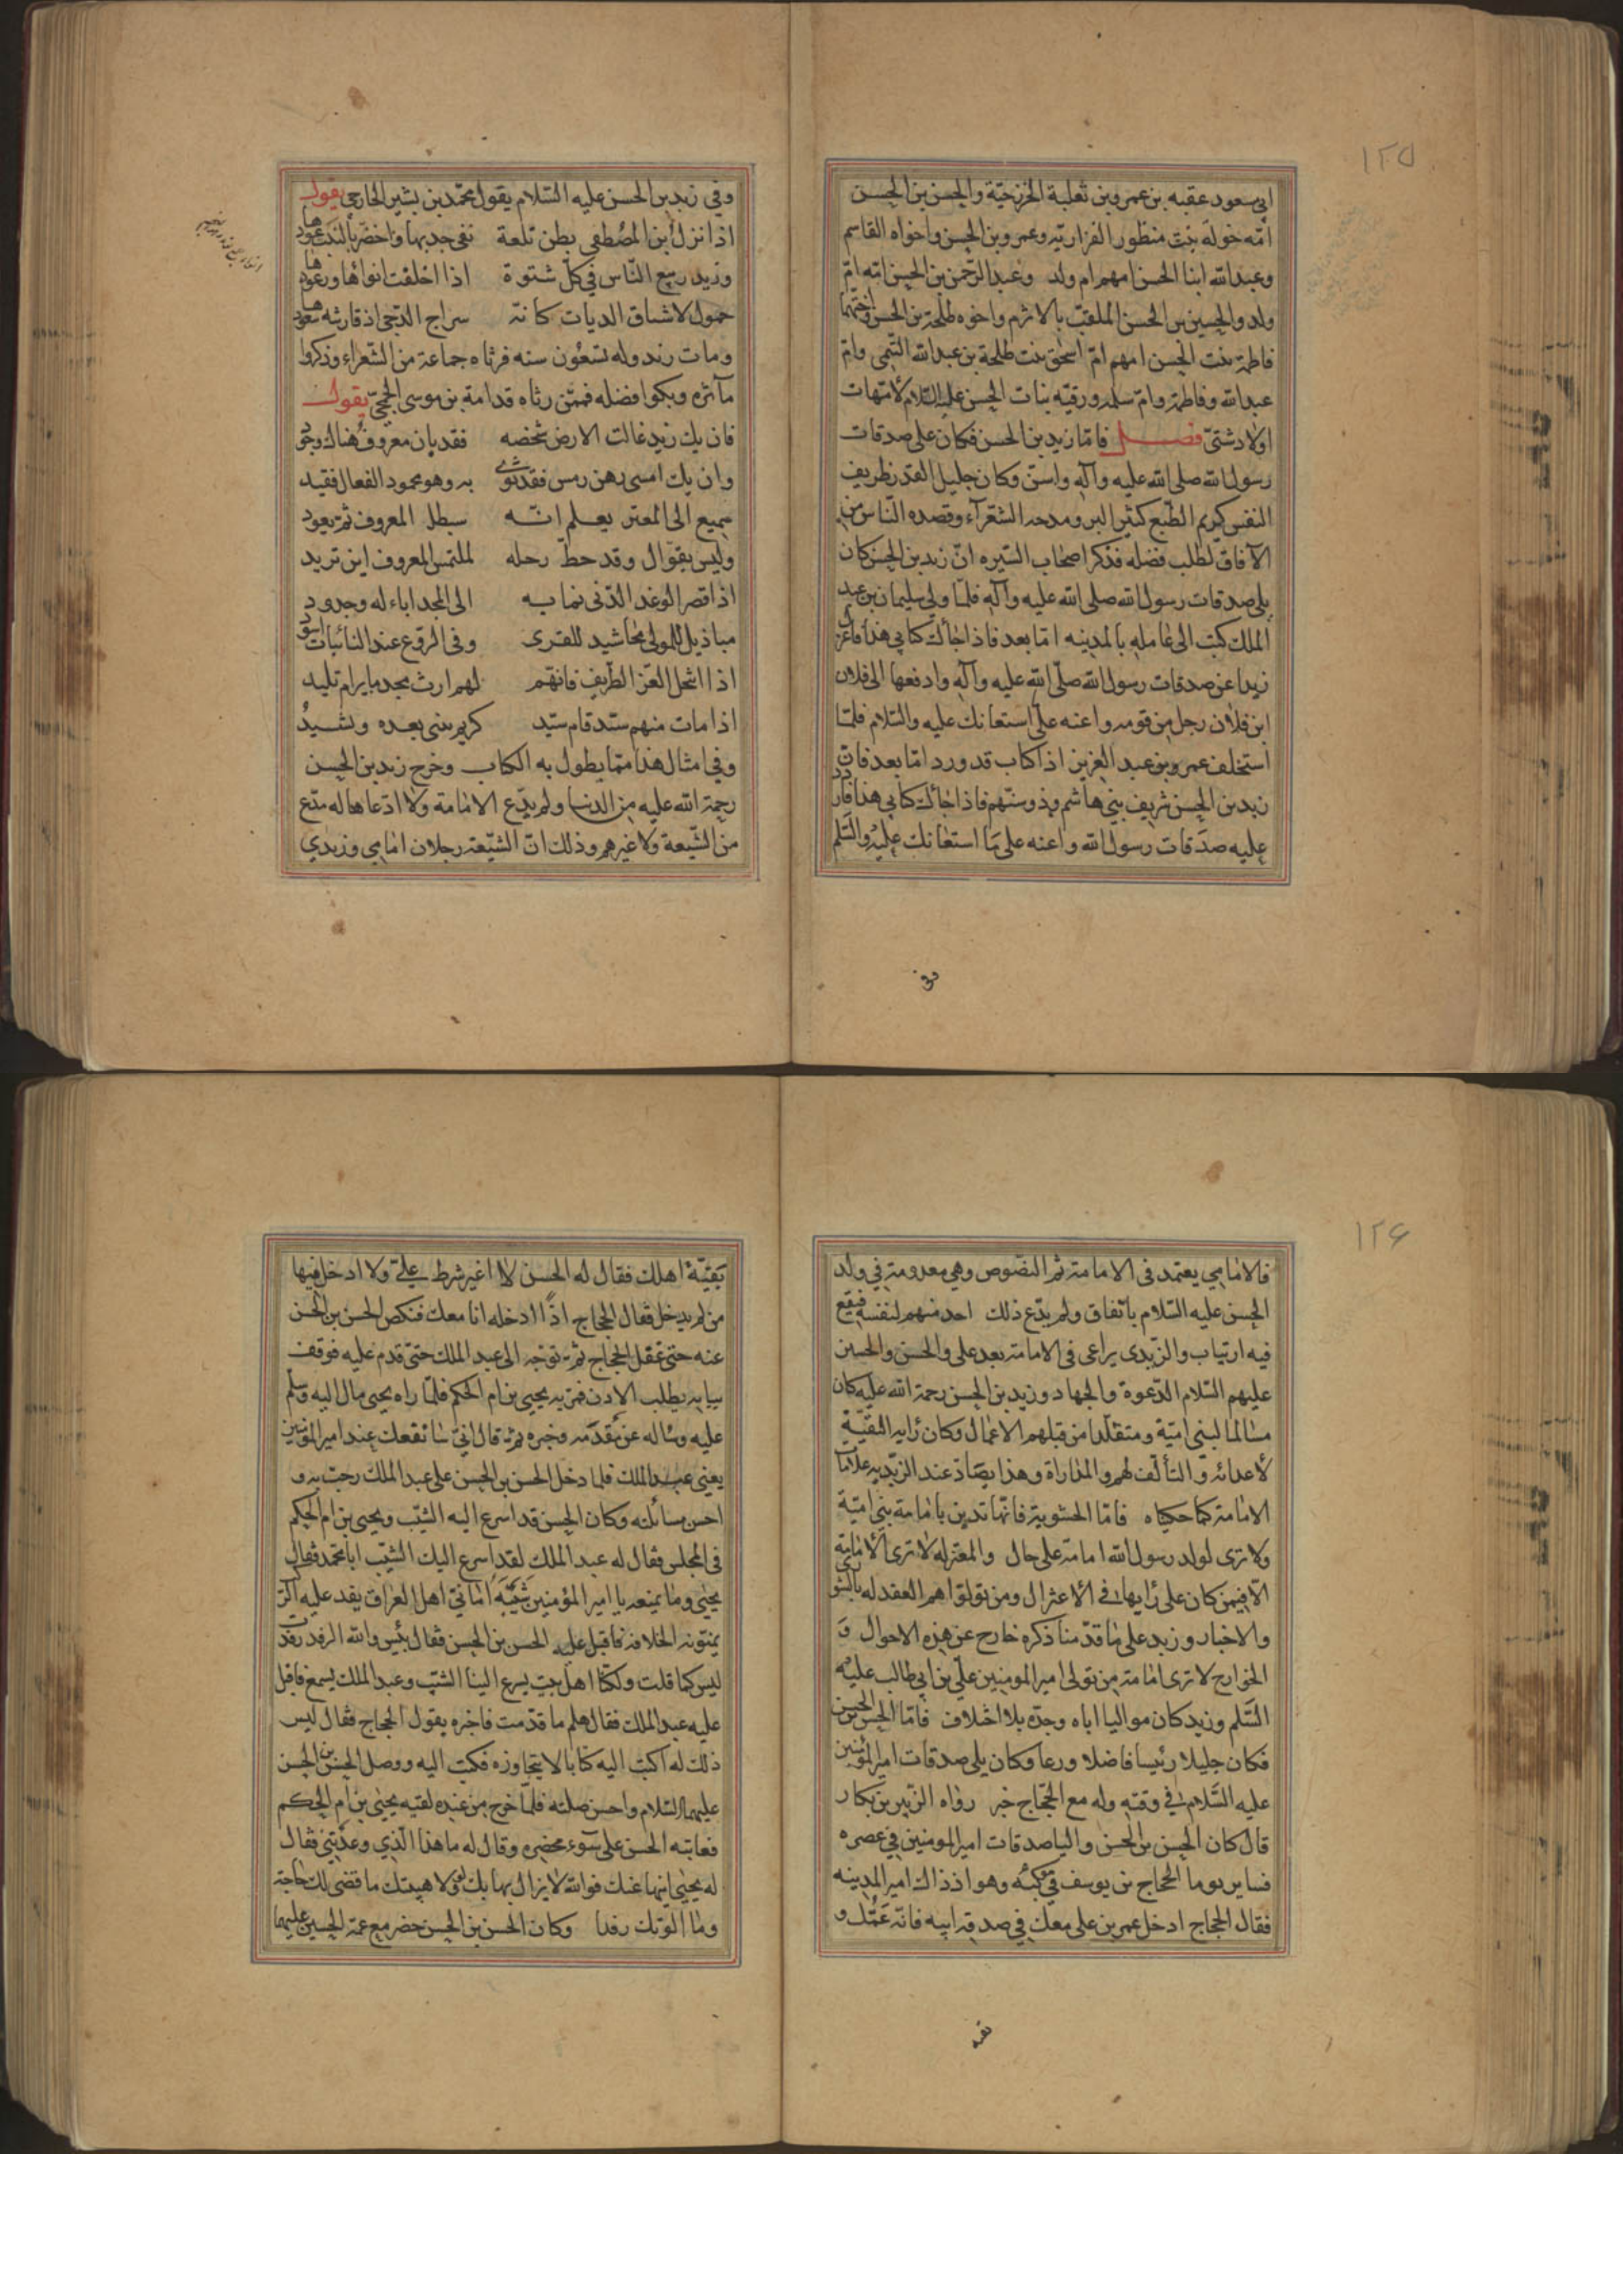 ١٢٥
ابي مسعود عقبه بن عمرو بن ثعلبة الخزرجيّة والحسن بن الحسن
امّه خوله بنت منظور الفزاريّه وعمرو بن الحسن واخواه القاسم
وعبد الله ابنا الحسن امهم ام ولد وعبد الرّحمن بن الحسن امّه امّ
ولد والحسين بن الحسن الملقب بالاثرم واخوه طلحة بن الحسن واختهما
فاطمة بنت الحسن امهم امّ اسحق بنت طلحة بن عبد الله التيمى وامّ
عبد الله وفاطمة وامّ سلمه ورقيّه بنات الحسن عليه السّلام لامّهات
اولاد شتىّ فصل فامّا زيد بن الحسن فكان على صدقات
رسول الله صلى الله عليه وآله واسنّ وكان جليل القدر ظريف
النفس كريم الطّبع كثير البر ومدحه الشّعرآء وقصده النّاس من
الآفاق لطلب فضله فذكر اصحاب السّيره انّ زيد بن الحسن كان
يلى صدقات رسول الله صلى الله عليه وآله فلمّا ولى سليمان بن عبد
الملك كتب الى عامله بالمدينه امّا بعد فاذا جائك كتابي هذا فاعزل
زيدا عن صدقات رسول الله صلّى الله عليه وآله وادفعها الى فلان
ابن فلان رجل من قومه واعنه على استعانك عليه والسّلام فلمّا
استخلف عمرو بن عبد العزيز اذا كتاب قد ورد امّا بعد فان
زيد بن الحسن شريف بني هاشم وذو سنّهم فاذا جائك كتابي هذا فاردد
عليه صدقات رسول الله واعنه على ما استعانك عليه والسّلم
وفي زيد بن الحسن عليه السّلام يقول محمّد بن بشير الخارجي يقول
اذا نزل ابن المصطفى بطن تلعة نفى جدبها واخضرّ بالنبت عودها
وزيد ربيع النّاس في كلّ شتوة اذا اخلفت انوائها ورعودها
حمول لاشناق الديات كانّه سراج الدّجى اذ قارنته سعودها
ومات زيد وله تسعون سنه فرثاه جماعة من الشّعراء وذكروا
مآثره وبكوا فضله فممّن رثاه قدامة بن موسى الجمحيّ يقول
فان يك زيد غالت الارض شخصه فقد بان معروف هناك وجود
وان يك امسى رهن رمس فقد ثوى به وهو محمود الفعال فقيد
سميع الى المعتر يعلم انّه سيطلب المعروف ثم يعود
وليس بقوّال وقد حطّ رحله لملتمس المعروف اين تريد
اذا قصر الوغد الدّنى نما به الى المجد اباء له وجدود
مباذيل للمولى محاشيد للقرى وفى الرّوع عند النائبات اسود
اذا انتحل العزّ الطّريف فانّهم لهم ارث مجد ما يرام تليد
اذا مات منهم سيّد قام سيّد كريم يبنى بعده ويشيدُ
وفي امثال هذا ممّا يطول به الكتاب وخرج زيد بن الحسن
رحمة الله عليه من الدنيا ولم يدّع الامامة ولا ادّعاها له مدّع
من الشّيعة ولا غيرهم وذلك انّ الشيّعة رجلان امامي وزيدي
١٢٦
فالامامي يعتمد فى الامامة ثم النصّوص وهي معدومة في ولد
الحسن عليه السّلام باتّفاق ولم يدّع ذلك احد منهم لنفسه فيقع
فيه ارتياب والزّيدى يراعى فى الامامة بعد على والحسن والحسين
عليهم السّلام الدّعوة والجهاد وزيد بن الحسن رحمة الله عليه كان
مسالما لبنى اميّة ومتقلّدا من قبلهم الاعمال وكان رايه التقيّة
لاعدائه والتألّف لهم والمداراة وهذا يضادّ عند الزّيديه علامات
الامامة كما حكيناه فامّا الحشوية فانّها تدين بامامة بني اميّة
ولا ترى لولد رسول الله امامة على حال والمعتزله لا ترى الامامة
الّا فيمن كان على رأيها في الاعتزال ومن تولّوا هم العقد له بالشورى
والاختيار وزيد على ما قدّمنا ذكره خارج عن هذه الاحوال و
الخوارج لا ترى امامة من تولى امير المومنين علّي بن ابي طالب عليه
السّلم وزيد كان مواليا اباه وجدّه بلا اختلاف فامّا الحسن بن الحسن
فكان جليلا رئيسا فاضلا ورعا وكان يلي صدقات امير المؤمنين
عليه السّلام في وقته وله مع الحجّاج خبر رواه الزّبير بن بكار
قال كان الحسن بن الحسن واليا صدقات امير المومنين في عصره
فساير يوما الحجاج بن يوسف في موكبه وهو اذ ذاك امير المدينه
فقال الحجاج ادخل عمر بن على معك في صدقه ابيه فانّه عمّك و
بقيّة اهلك فقال له الحسن لا اغير شرط علىّ ولا ادخل فيها
من لم يدخل فقال الحجاج اذًا ادخله انا معك فنكص الحسن بن الحسن
عنه حتى غفل الحجاج ثم توجّه الى عبد الملك حتىّ قدم عليه فوقف
ببابه يطلب الاذن فمرّ به يحيى بن ام الحكم فلمّا راه يحيى مال اليه وسلّم
عليه وساله عن مقدمه وخبره ثم قال انّي سانفعك عند امير المؤمنين
يعني عبد الملك فلما دخل الحسن بن الحسن على عبد الملك رحب به و
احسن مسائلته وكان الحسن قد اسرع اليه الشيّب ويحيى بن ام الحكم
فى المجلس فقال له عبد الملك لقد اسرع اليك الشيّب ابا محمّد فقال
يحيى وما يمنعه يا امير المؤمنين شَيَّبَه امانيّ اهل العراق يفد عليه الركب
يمنّونه الخلافة فاقبل عليه الحسن بن الحسن فقال بئس والله الرفد رفدت
ليس كما قلت ولكنّا اهل بيت يسرع الينا الشيّب وعبد الملك يسمع فاقبل
عليه عبد الملك فقال هلم ما قدّمت فاخبره بقول الحجاج فقال ليس
ذلك له اكتب اليه كتابا لا يتجاوزه فكتب اليه ووصل الحسن بن الحسن
عليهما السّلام واحسن صلته فلمّا خرج من عنده لقيه يحيى بن ام الحكم
فعاتبه الحسن على سوء محضره وقال له ما هذا الّذي وعدتني فقال
له يحيى ايها عنك فوالله لا يزال يهابك ولولا هيبتك ما قضى لك حاجة
وما الوتك رفدا وكان الحسن بن الحسن حضر مع عمّه الحسين عليهما